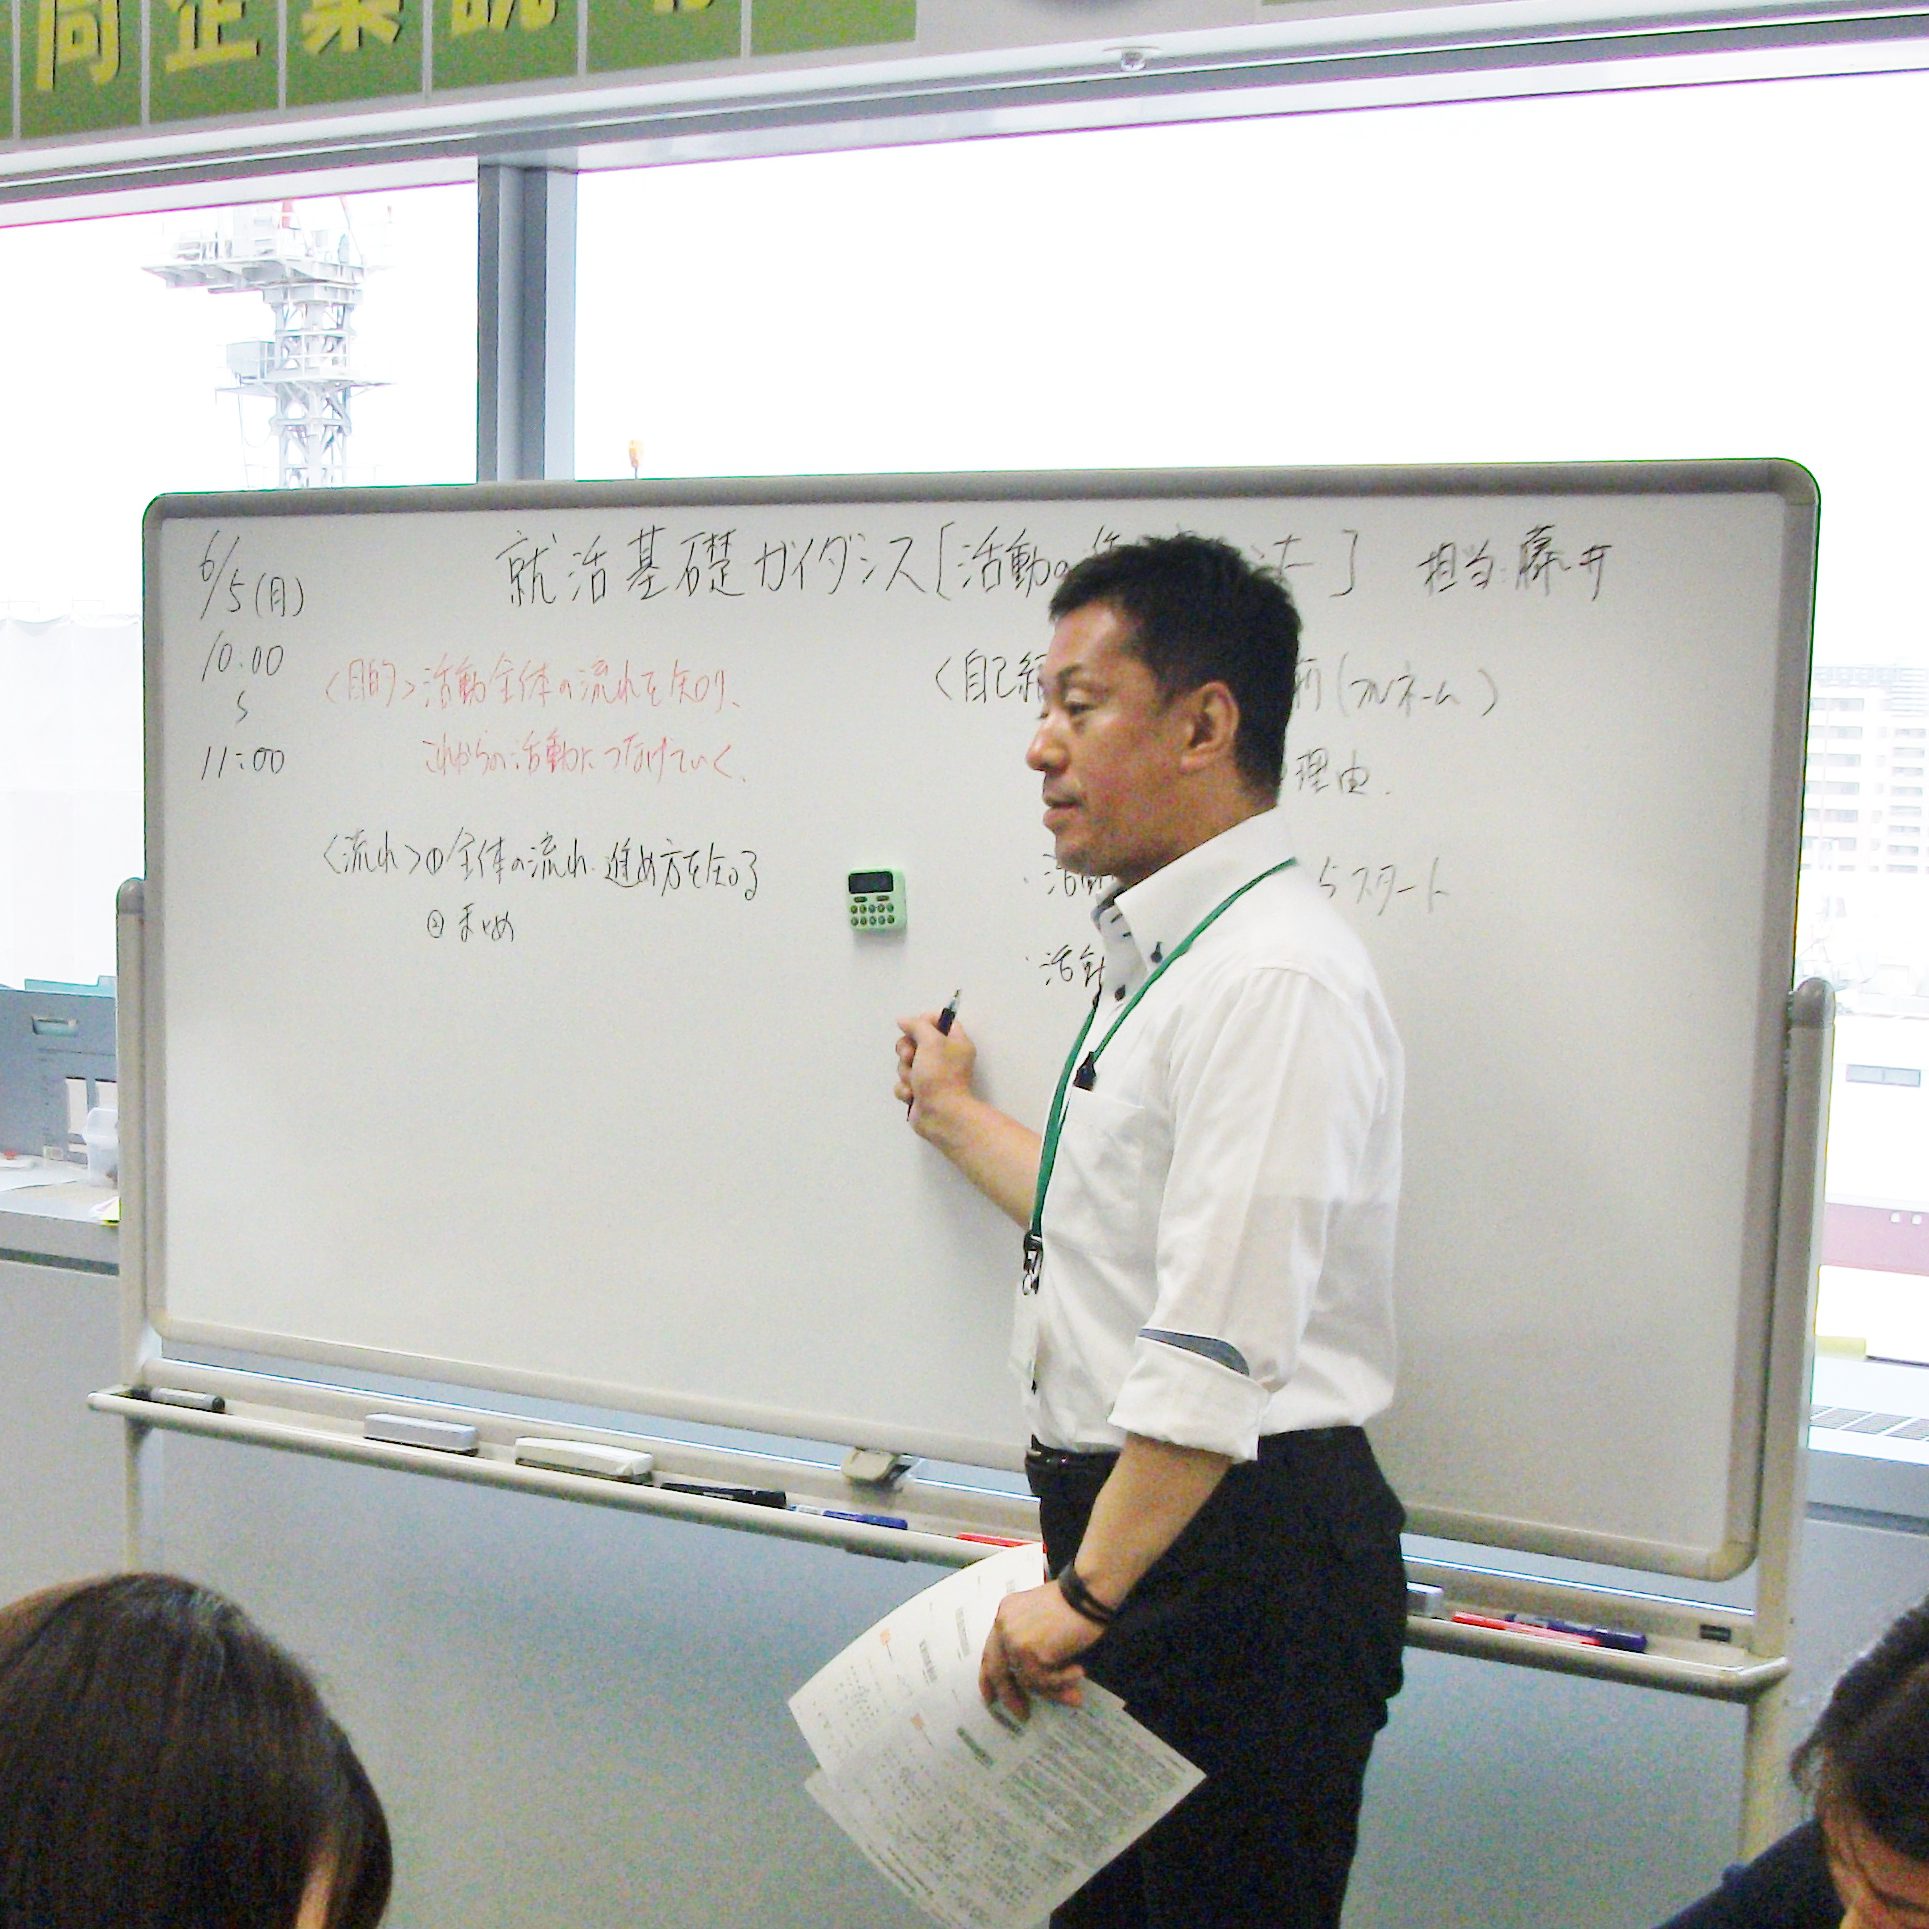 同企業説
6/5(月)
10:00
〜
11:00
就活基礎ガイダンス[活動の
] 担当:藤井
<目的>活動全体の流れを知り、
これからの活動につなげていく。
<流れ>①全体の流れ、進め方を知る
②まとめ
<自己紹
前(フルネーム)
理由.
・活動
らスタート
・活動